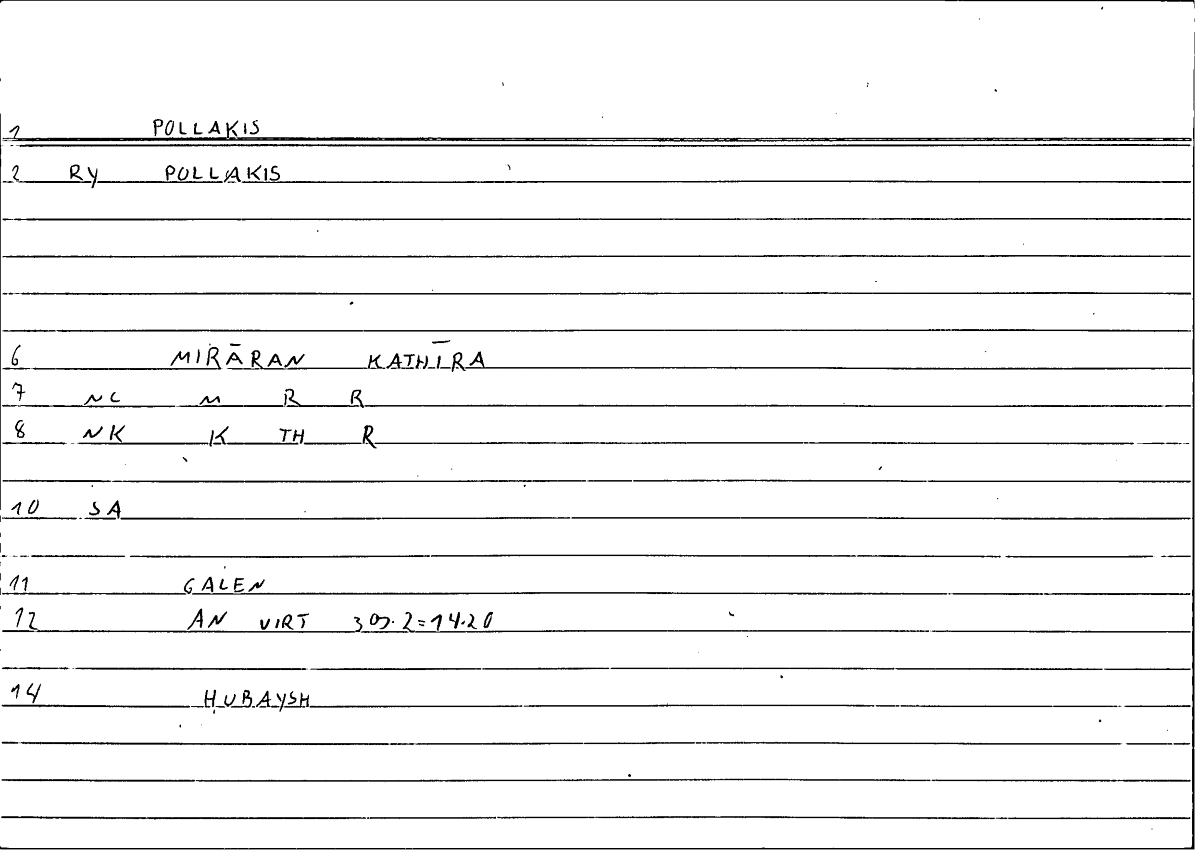 1 POLLAKIS
2 RY POLLAKIS
6 MIRĀRAN KATHĪRA
7 NC M R R
8 NK K TH R
10 SA
11 GALEN
12 AN VIRT 309.2=14.20
14 ḤUBAYSH